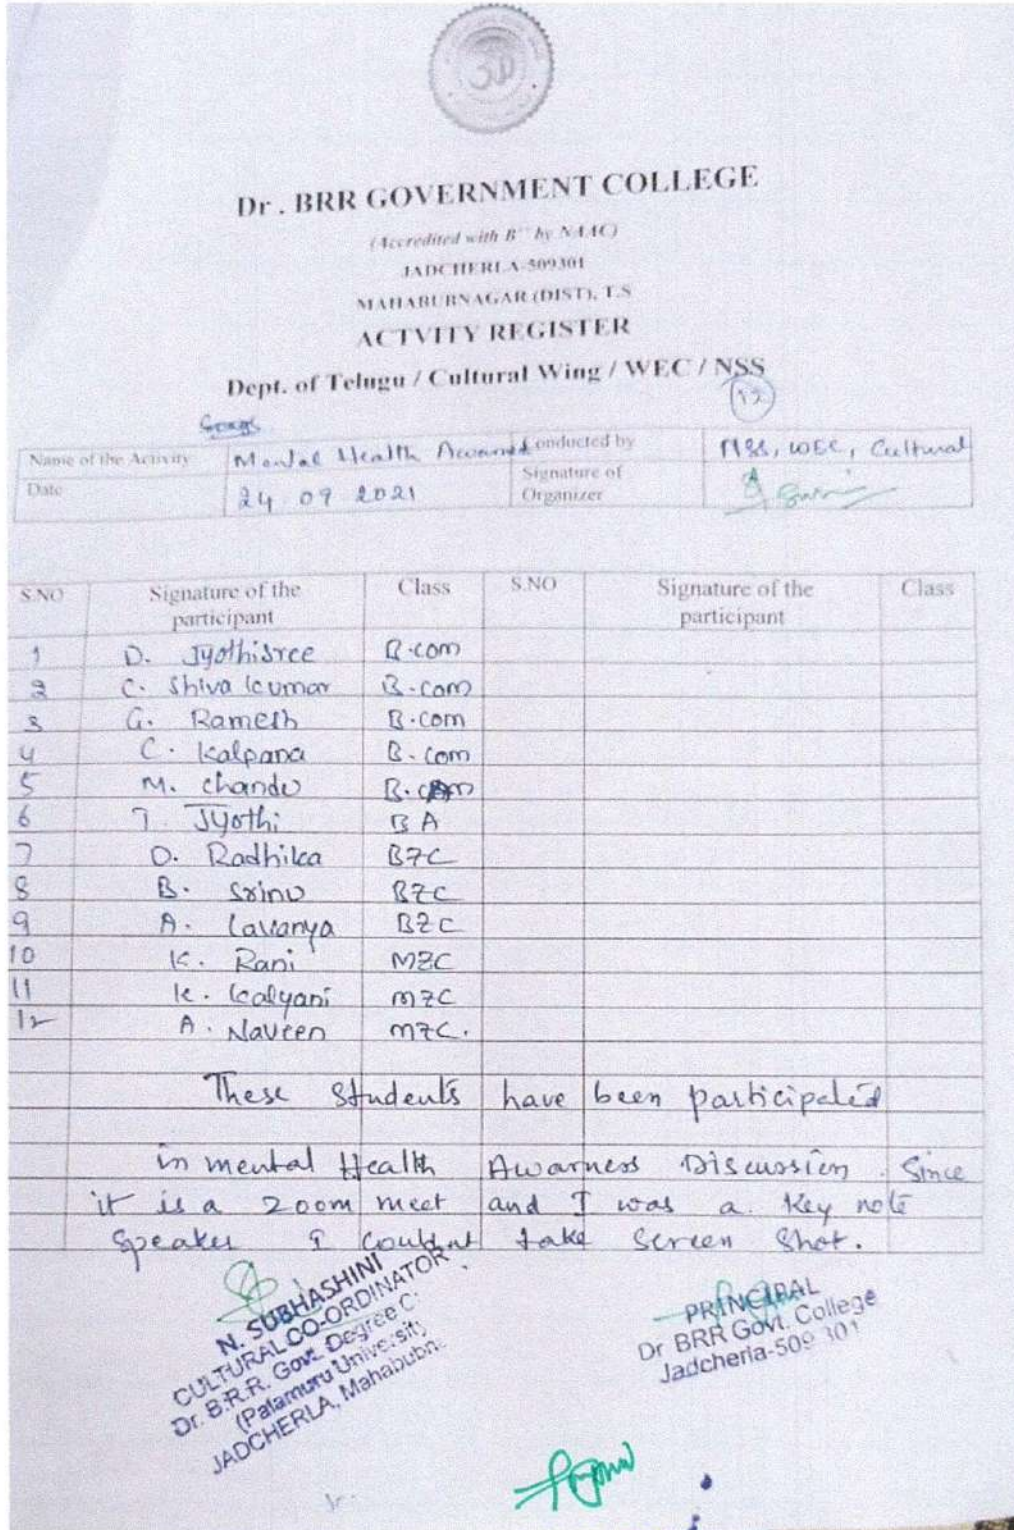 Dr . BRR GOVERNMENT COLLEGE
(Accredited with B++ by NAAC)
JADCHERLA-509301
MAHABUBNAGAR (DIST), T.S
ACTVITY REGISTER
Dept. of Telugu / Cultural Wing / WEC / NSS
12
Name of the Activity Mental Health Conducted by NSS, WEC, Cultural
Date 24 09 2021 Signature of Organizer
S.NO Signature of the participant Class S.NO Signature of the participant Class
1 D. Jyothisree B.com
2 C. Shiva kumar B.com
3 G. Ramesh B.com
4 C. Kalpana B.com
5 M. chandu B.com
6 T. Jyothi BA
7 D. Radhika BZC
8 B. Srinu BZC
9 A. Lavanya BZC
10 K. Rani MZC
11 K. Kalyani MZC
12 A. Naveen MZC.
These Students have been participated
in mental Health Awarness Discussion. Since
it is a zoom meet and I was a Key note
Speaker I couldnt take Screen Shot.
N. SUBHASHINI
CULTURAL CO-ORDINATOR
Dr. B.R.R. Govt. Degree C
(Palamuru University
JADCHERLA, Mahabubn
PRINCIPAL
Dr BRR Govt. College
Jadcherla-509 301